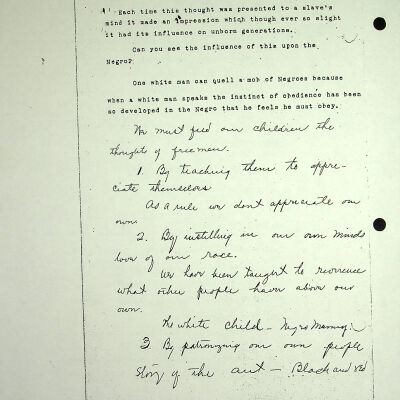 Each time this thought was presented to a slave's
mind it made an impression which though ever so slight
it had its influence on unborn generations.
Can you see the influence of this upon the
Negro?
One white man can quell a mob of Negroes because
when a white man speaks the instinct of obedience has been
so developed in the Negro that he feels he must obey.
We must feed our children the
thoughts of freemen.
1. By teaching them to appre-
ciate themselves
As a rule we dont appreciate our
own.
2. By instilling in our own minds
love of our race.
We have been taught to reverence
what other people have above our
own.
The white child - Negro Mammy.
3. By patronizing our own people
Story of the ant - Black and red